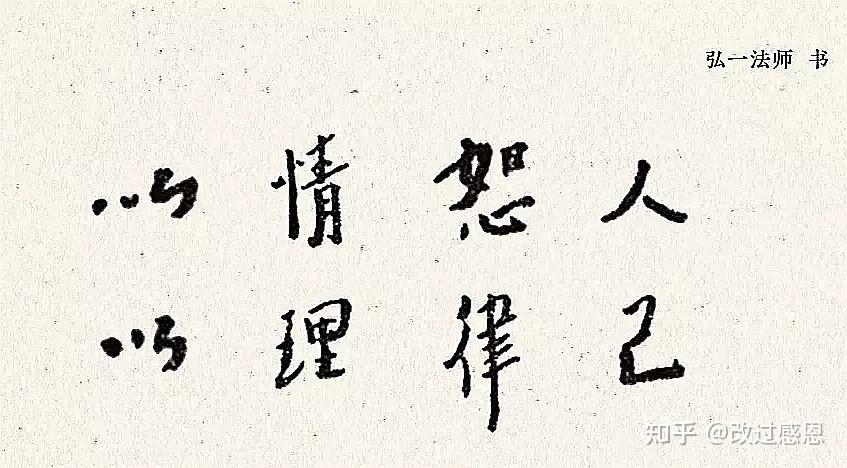 弘一法师 书
以情恕人
以理律己
知乎 @改过感恩